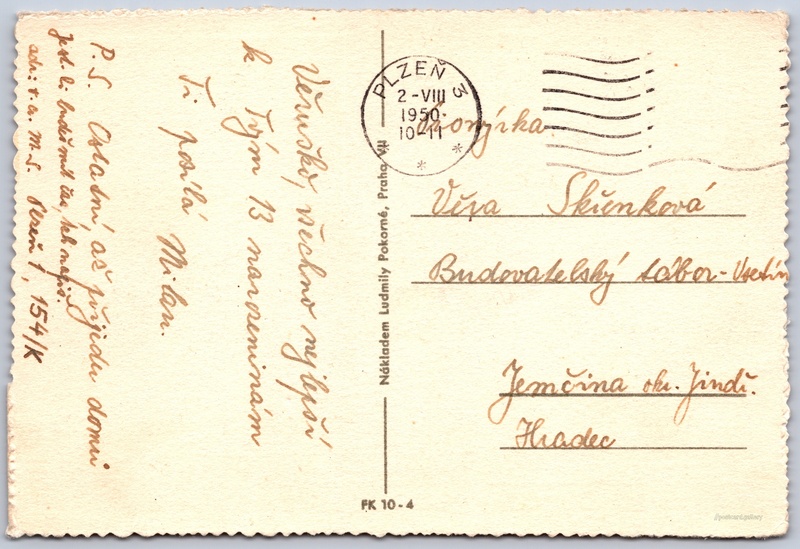 Věruško, všechno nejlepší
k Tvým 13 narozeninám
Ti posílá Milan.
P.S. Ostatní, až přijedu domů
Jest-li budeš mít čas, tak napiš.
adr: v. a. M. S. Plzeň 1, 154/K
Nákladem Ludmily Pokorné, Praha VII
FK 10-4
PLZEŇ 3
2-VIII
1950
10-11
* *
Věra Skřenková
Budovatelský tábor - Vsetín
Jemčina okr. Jindř.
Hradec